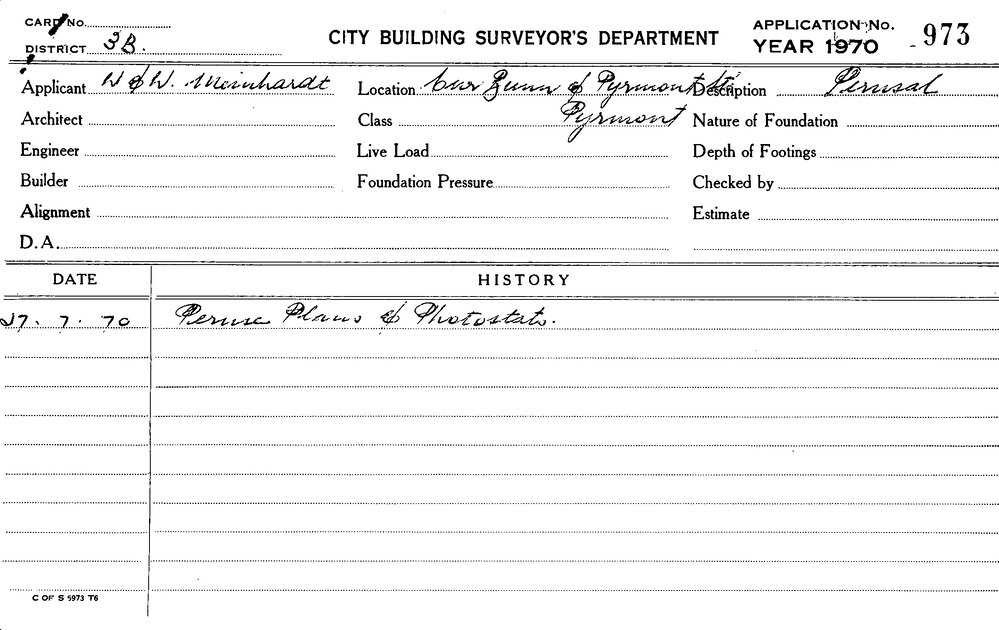 CARD No.
DISTRICT 3B.
CITY BUILDING SURVEYOR'S DEPARTMENT
APPLICATION No. 973
YEAR 1970
Applicant W & W. Meinhardt
Location Cnr Bunn & Pyrmont Sts Pyrmont
Description Perusal
Architect
Class
Nature of Foundation
Engineer
Live Load
Depth of Footings
Builder
Foundation Pressure
Checked by
Alignment
Estimate
D.A.
DATE HISTORY
27. 7. 70 Peruse Plans & Photostats.
C OF S 5973 T6